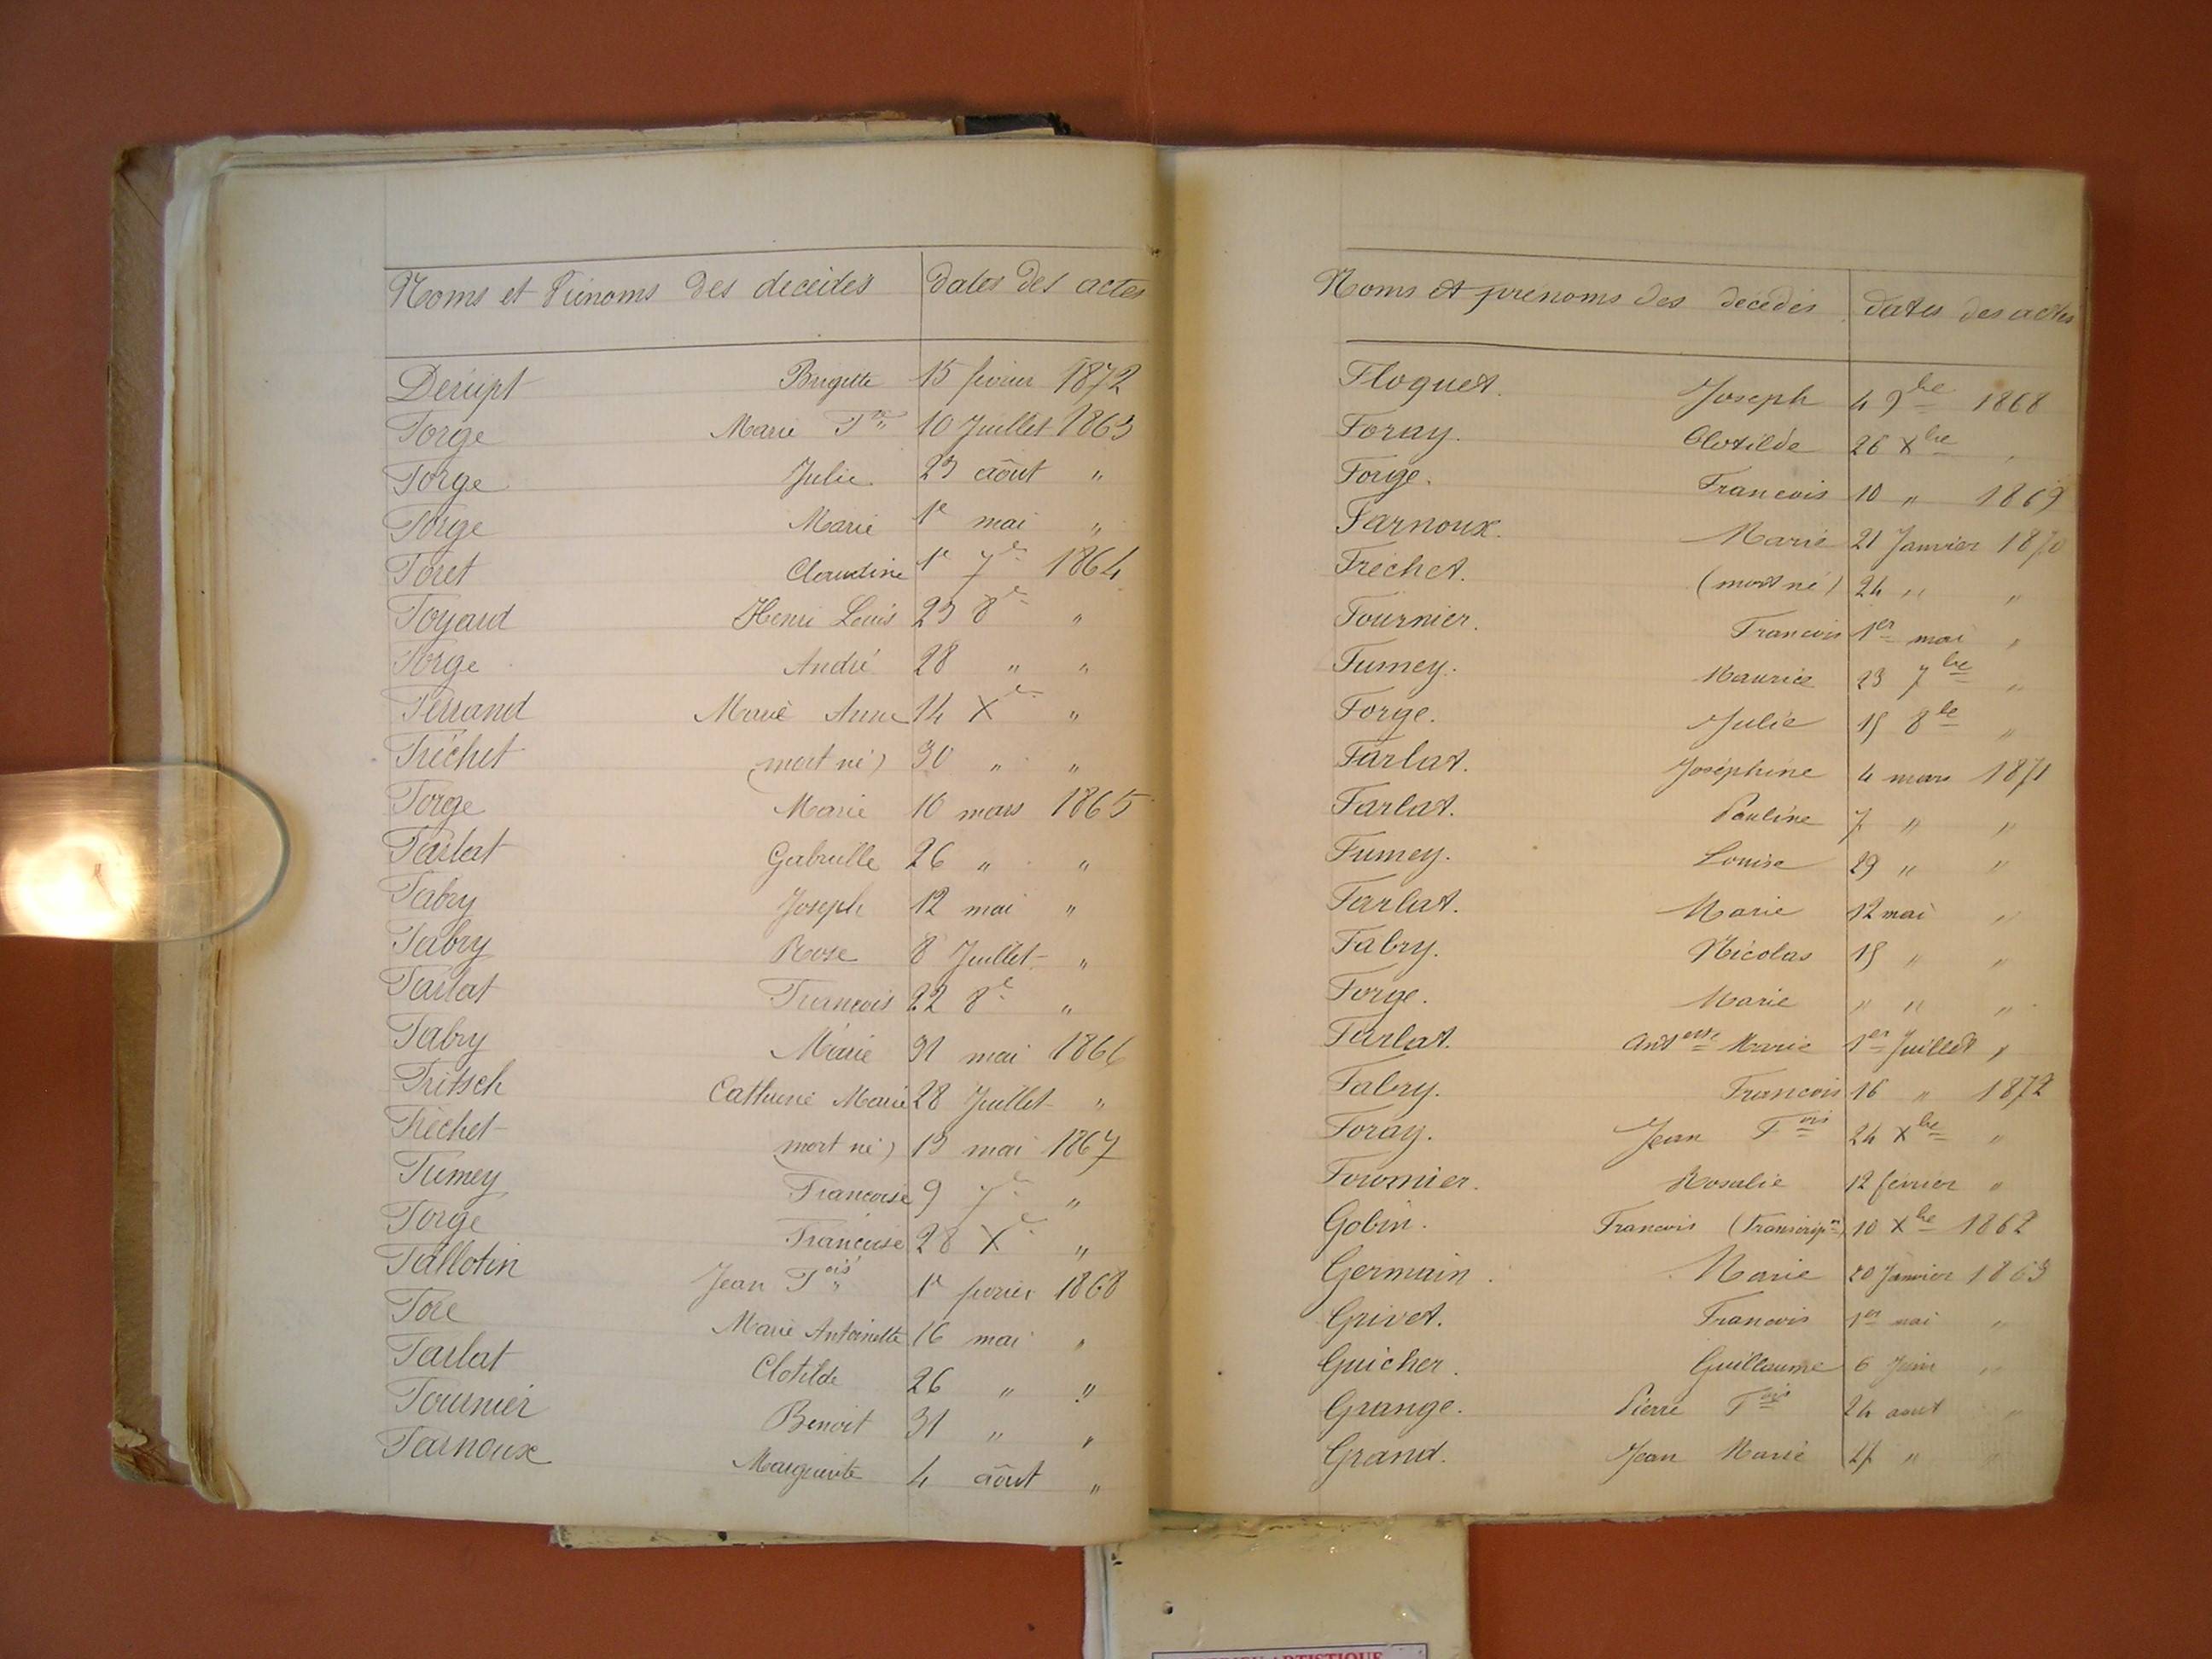 Noms et Prénoms des décédés dates des actes
Dérupt Brigitte 15 février 1872
Forge Marie 10 Juillet 1863
Forge Julie 23 août "
Forge Marie 1e mai "
Foret Claudine 1e 7e 1864
Foyard Henri Louis 23 8e "
Forge André 28 " "
Ferrand Marie Anne 14 Xe "
Fréchet (mort né) 30 " "
Forge Marie 10 mars 1865
Farlat Gabrielle 26 " "
Fabry Joseph 12 mai "
Fabry Rose 8 Juillet "
Farlat Francois 22 8e "
Fabry Marie 31 mai 1866
Fritsch Catherine Marie 28 Juillet "
Fréchet (mort né) 13 mai 1867
Fumey Francoise 9 7e "
Forge Francoise 28 Xe "
Fallotin Jean Fois 1er février 1868
Fore Marie Antoinette 16 mai "
Farlat Clotilde 26 " "
Fournier Benoit 31 " "
Farnoux Marguerite 4 août "
Noms et prénoms des décédés dates des actes
Floquet. Joseph 4 9bre 1868
Foray. Clotilde 26 Xbre "
Forge. Francois 10 " 1869
Farnoux. Marie 21 Janvier 1870
Fréchet. (mort né) 24 " "
Fournier. Francois 1er mai "
Fumey. Maurice 23 7bre "
Forge. Julie 15 8bre "
Farlat. Joséphine 4 mars 1871
Farlat. Pauline 7 " "
Fumey. Louise 29 " "
Farlat. Marie 12 mai "
Fabry. Nicolas 15 " "
Forge. Marie " " "
Farlat. Antette Marie 1er Juillet "
Fabry. Francois 16 " 1872
Foray. Jean Fois 24 Xbre "
Fournier. Rosalie 12 février "
Gobin. Francois (Transcripon) 10 Xbre 1862
Germain. Marie 20 Janvier 1863
Grivet. Francois 1er mai "
Guicher. Guillaume 6 Juin "
Grange. Pierre Fois 24 aout "
Grand. Jean Marie " "
ARTISTIQUE